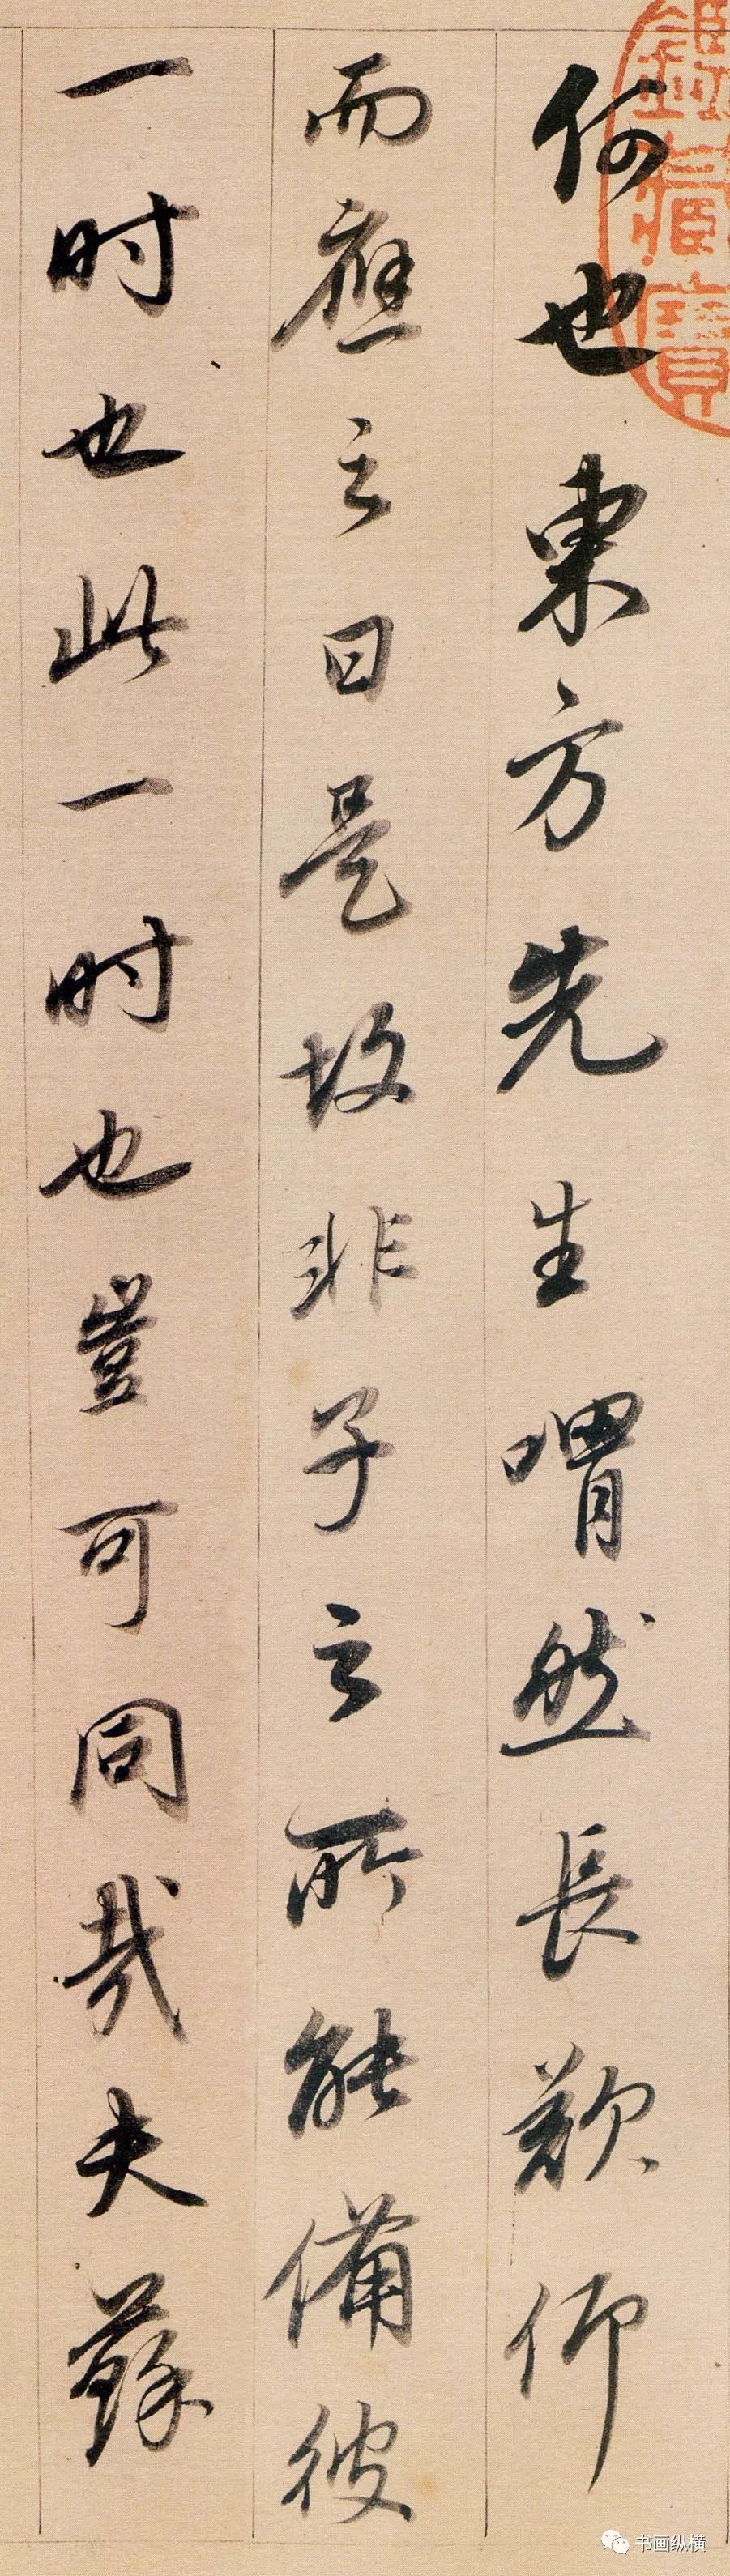 何也東方先生喟然長歎仰
而應之曰是故非子之所能備彼
一时也此一时也豈可同哉夫蘇
鑑藏寶
书画纵横